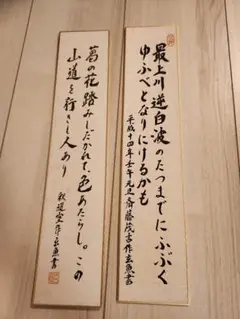 最上川逆白波のたつまでにふぶく
ゆふべとなりにけるかも
平成十四年壬午元旦斎藤茂吉作玄魚書
葛の花踏みしだかれて、色あたらし。この
山道を行きし人あり
釈迢空作玄魚書